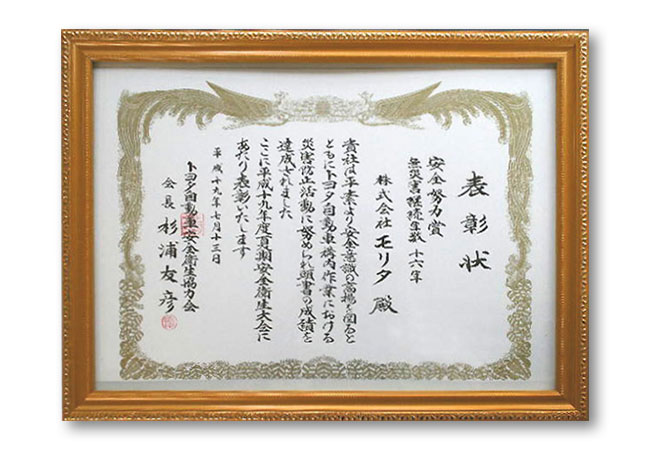 表彰状
安全努力賞
無災害継続年数 十六年
株式会社 モリタ 殿
貴社は平素より安全意識の高揚を図ると
ともにトヨタ自動車構内作業における
災害防止活動に努められ頭書の成績を
達成されました
ここに平成十九年度夏期安全衛生大会に
あたり表彰いたします
平成十九年七月十三日
トヨタ自動車安全衛生協力会
会長 杉浦友彦